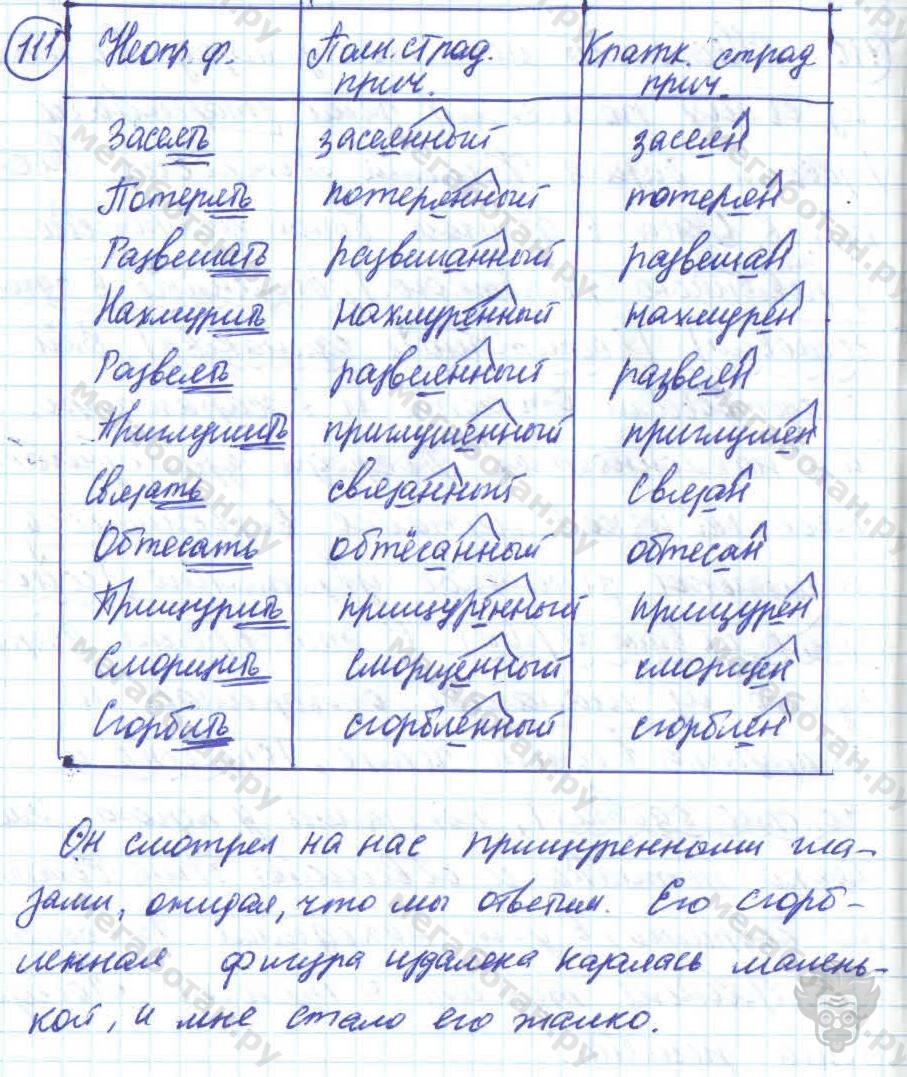 111 Неопр. ф. Полн. страд. прич. Кратк. страд прич.
Засеять засеянный засеян
Потерять потерянный потерян
Развешать развешанный развешан
Нахмурить нахмуренный нахмурен
Развеять развеянный развеян
Приглушить приглушенный приглушен
Связать связанный связан
Обтесать обтёсанный обтесан
Прищурить прищуренный прищурен
Сморщить сморщенный сморщен
Сгорбить сгорбленный сгорблен
Он смотрел на нас прищуренными гла-
зами, ожидая, что мы ответим. Его сгорб-
ленная фигура издалека казалась малень-
кой, и мне стало его жалко.
мегаботан.ру